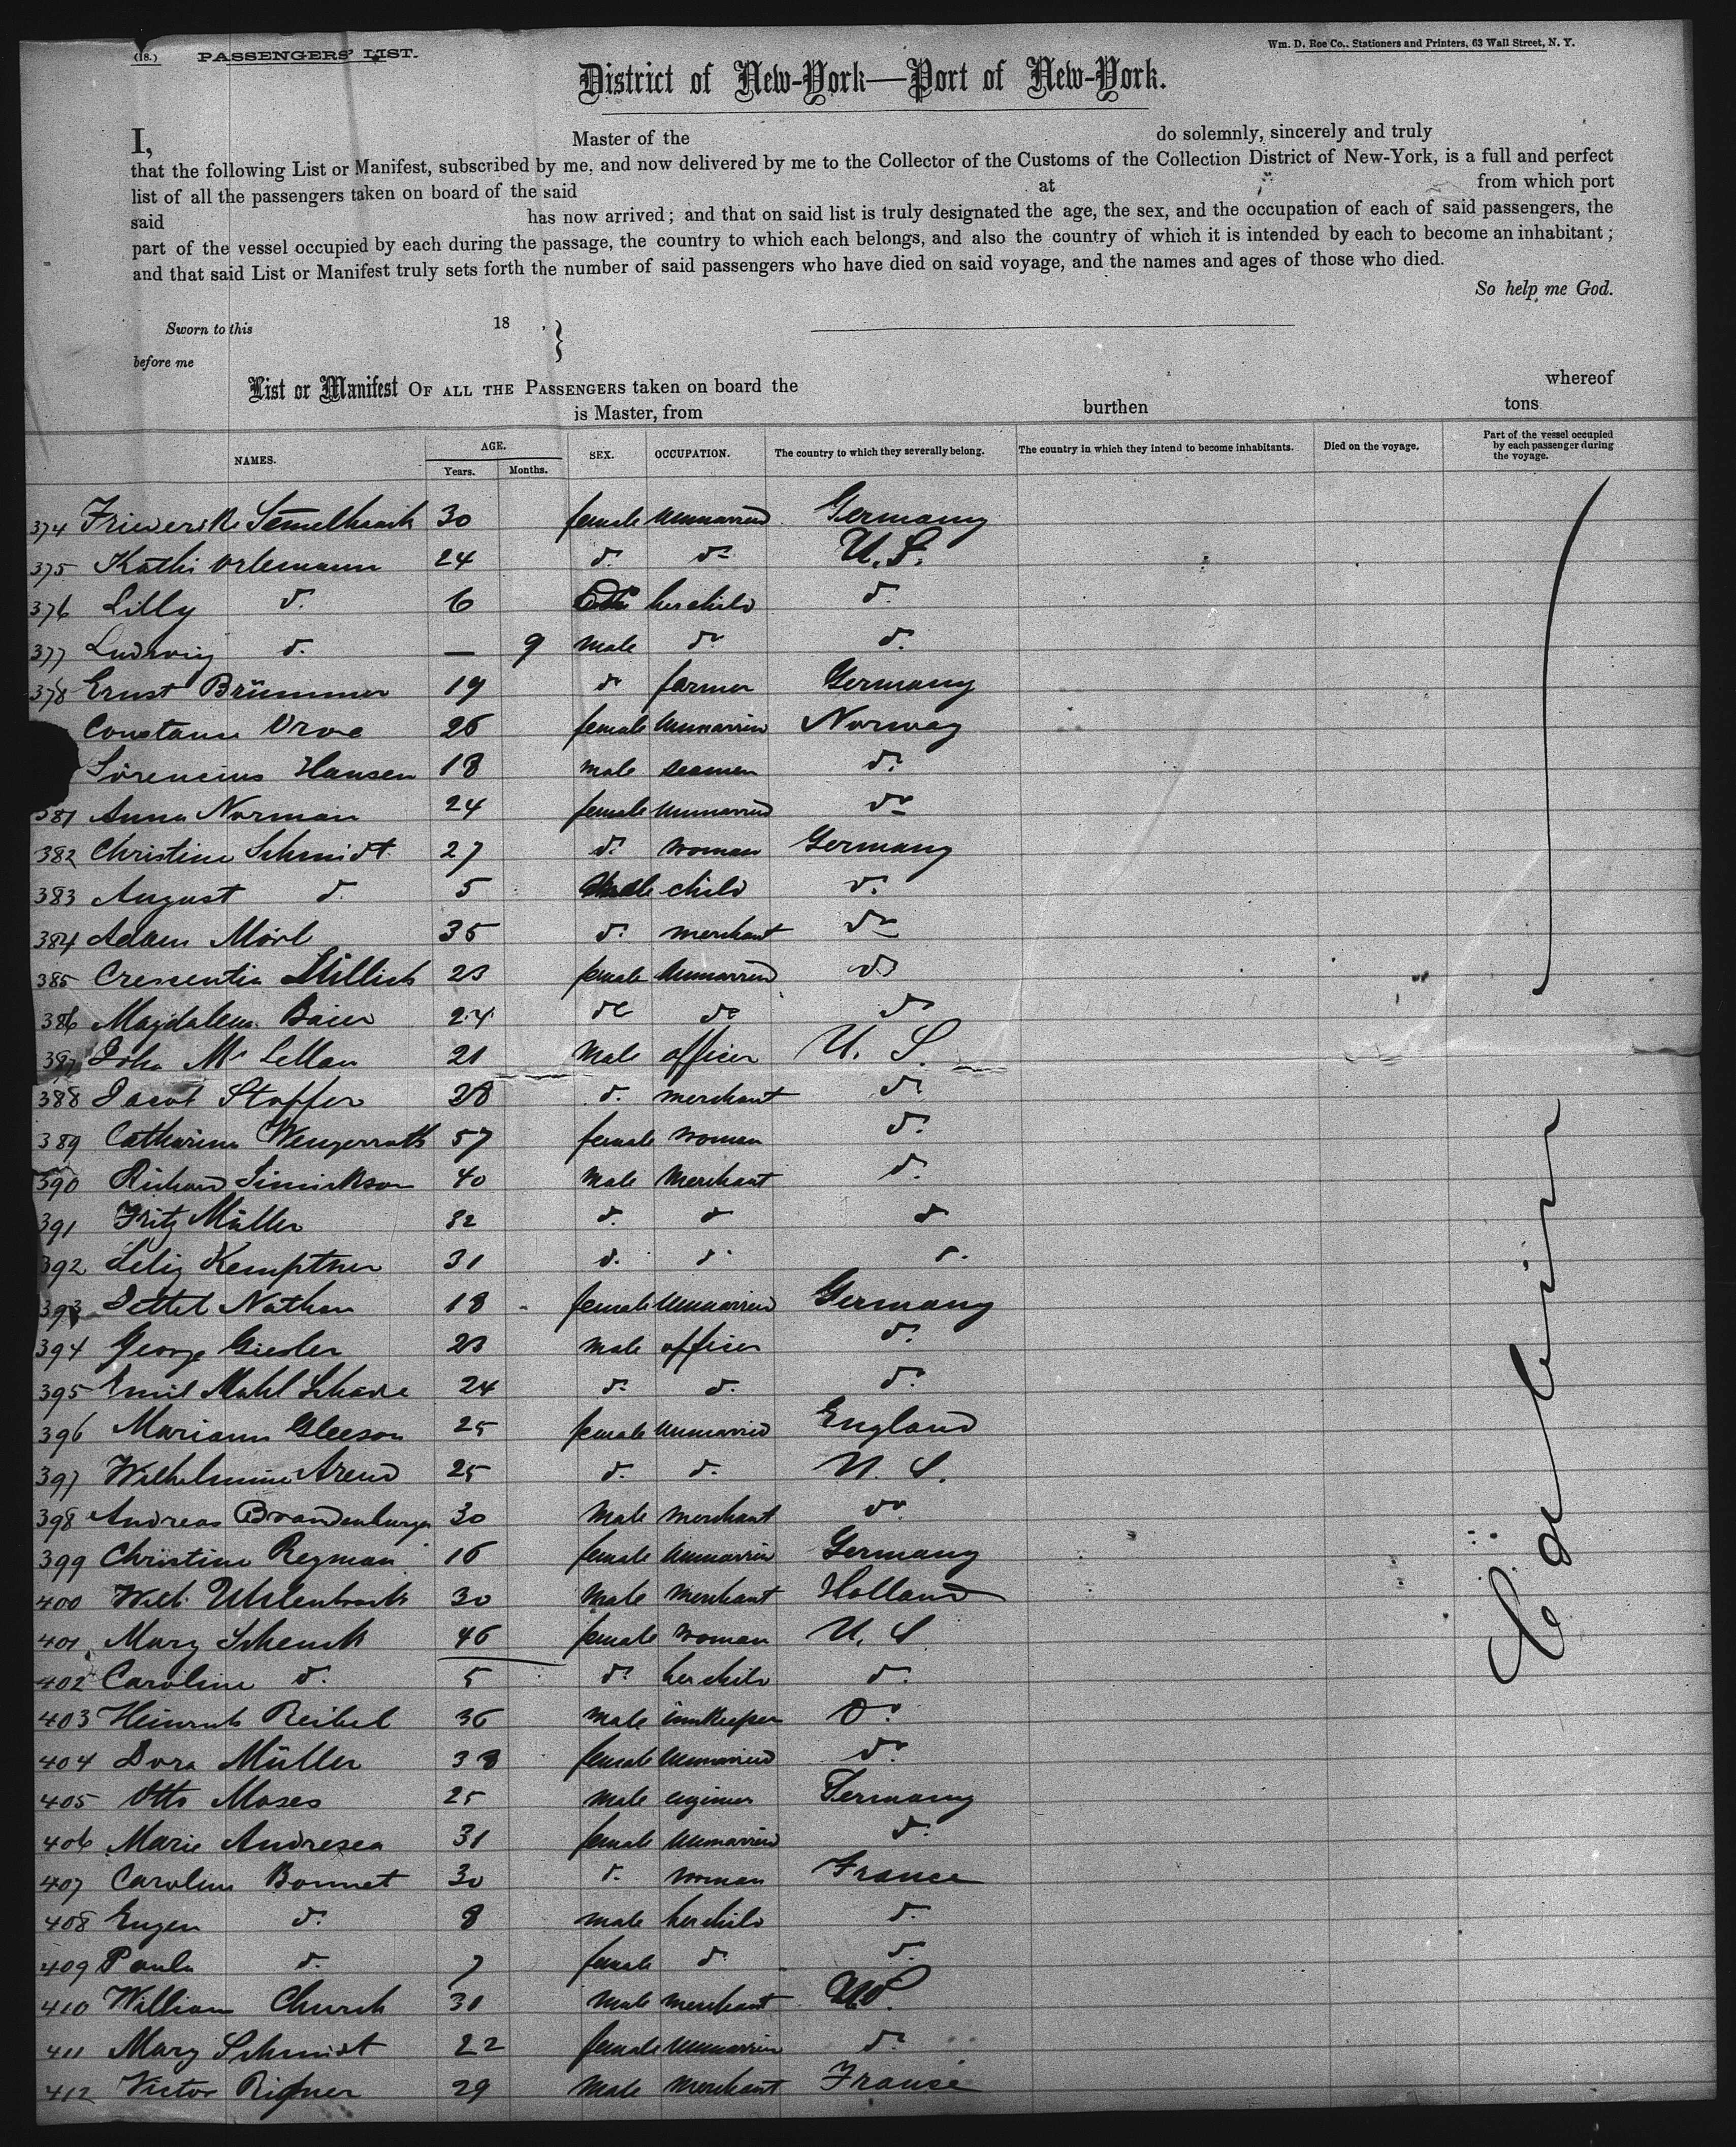 (18.) PASSENGERS' LIST.
Wm. D. Roe Co., Stationers and Printers, 63 Wall Street, N. Y.
District of New-York—Port of New-York.
I, Master of the do solemnly, sincerely and truly
that the following List or Manifest, subscribed by me, and now delivered by me to the Collector of the Customs of the Collection District of New-York, is a full and perfect
list of all the passengers taken on board of the said at from which port
said has now arrived; and that on said list is truly designated the age, the sex, and the occupation of each of said passengers, the
part of the vessel occupied by each during the passage, the country to which each belongs, and also the country of which it is intended by each to become an inhabitant;
and that said List or Manifest truly sets forth the number of said passengers who have died on said voyage, and the names and ages of those who died.
So help me God.
Sworn to this 18 , }
before me
List or Manifest OF ALL THE PASSENGERS taken on board the whereof
is Master, from burthen tons
NAMES. AGE. Years. Months. SEX. OCCUPATION. The country to which they severally belong. The country in which they intend to become inhabitants. Died on the voyage. Part of the vessel occupied by each passenger during the voyage.
374 Friederike 30 female unmarried Germany
375 Kathi Orlemann 24 do do U.S.
376 Lilly do 6 her child do
377 Ludwig do — 9 male do do
378 Ernst Brümmer 19 do farmer Germany
26 female unmarried Norway
Sörencius Hansen 18 male seaman do
381 Anna Norman 24 female unmarried do
382 Christine Schmidt 27 do woman Germany
383 August do 5 male child do
384 Adam Mörl 35 do merchant do
385 Crescentia 23 female unmarried do
386 Magdalena Baier 24 do do do
387 John Mc Lellan 21 male officer U. S.
388 Jacob Stoffer 28 do merchant do
389 Catharina Wengerroth 57 female woman do
390 Richard 40 male merchant do
391 Fritz Müller 32 do do do
392 Kemptner 31 do do do
393 Jettel Nathan 18 female unmarried Germany
394 George Giesler 23 male officer do
395 Emil Mahl Schade 24 do do do
396 Mariann Gleeson 25 female unmarried England
397 Wilhelmine Arend 25 do do U. S.
398 Andreas Brandenburger 30 male merchant do
399 Christine Regman 16 female unmarried Germany
400 Wilh. Uhlenbrock 30 male merchant Holland
401 Mary Schenck 46 female woman U. S.
402 Caroline do 5 do her child do
403 Heinrich Reibel 36 male innkeeper do
404 Dora Müller 33 female unmarried do
405 Otto Moses 25 male engineer Germany
406 Marie Andresen 31 female unmarried do
407 Caroline Bonnet 30 do woman France
408 Eugen do 8 male her child do
409 Paula do 7 female do do
410 William Church 31 male merchant U.S.
411 Mary Schmidt 22 female unmarried do
412 Victor 29 male merchant France
Cabin